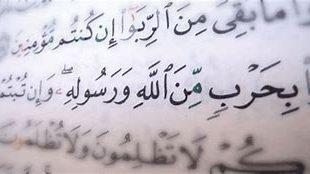 وَا مَا بَقِىَ مِنَ ٱلرِّبَوٰٓا۟ إِن كُنتُم مُّؤْمِنِينَ
بِحَرْبٍ مِّنَ ٱللَّهِ وَرَسُولِهِۦ ۖ وَإِن تُبْتُمْ
كُمْ لَا تَظْلِمُونَ وَلَا تُظْلَمُونَ